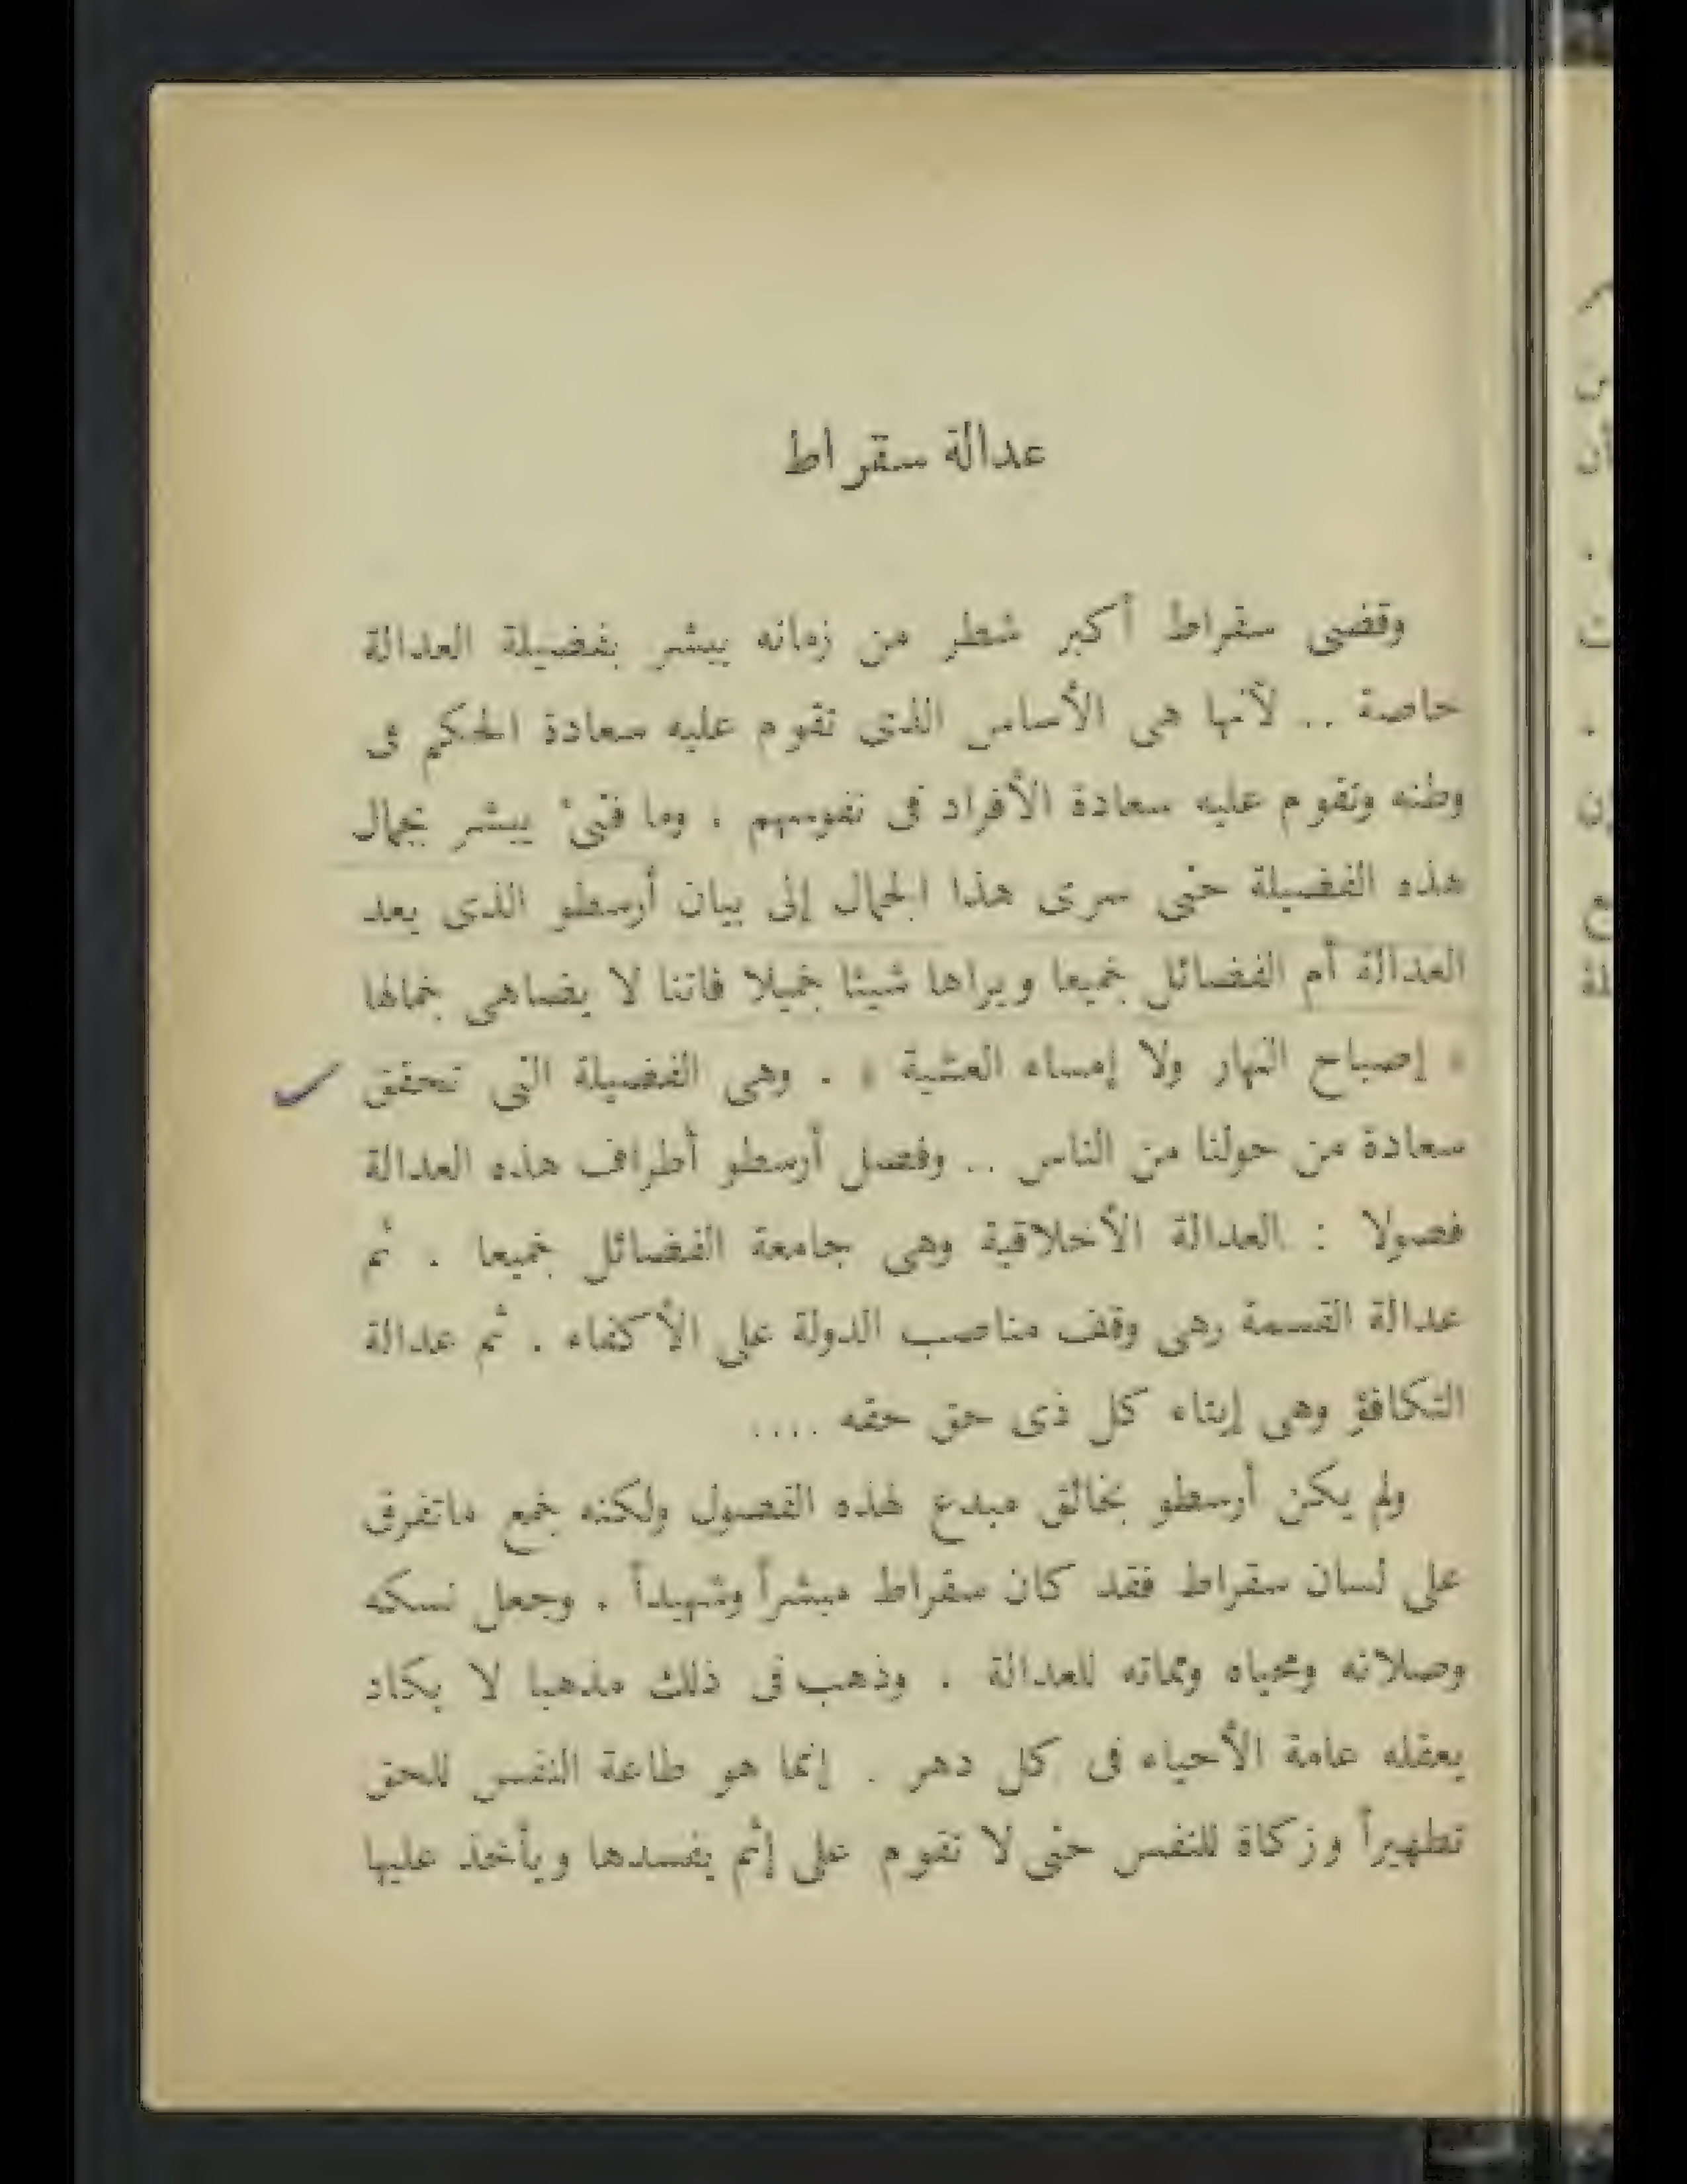 عدالة سقراط
وقضى سقراط أكبر شطر من زمانه يبشر بفضيلة العدالة
خاصة .. لأنها هى الأساس الذى تقوم عليه سعادة الحكم فى
وطنه وتقوم عليه سعادة الأفراد فى نفوسهم . وما فتىء يبشر بجمال
هذه الفضيلة حتى سرى هذا الجمال إلى بيان أرسطو الذى يعد
العدالة أم الفضائل جميعا ويراها شيئا جميلا فاتنا لا يضاهى جمالها
« إصباح النهار ولا إمساء العشية » . وهى الفضيلة التى تحقق
سعادة من حولنا من الناس .. وفصل أرسطو أطراف هذه العدالة
فصولا : العدالة الأخلاقية وهى جامعة الفضائل جميعا . ثم
عدالة القسمة وهى وقف مناصب الدولة على الأكفاء . ثم عدالة
التكافؤ وهى إيتاء كل ذى حق حقه ....
ولم يكن أرسطو بخالق مبدع لهذه الفصول ولكنه جمع ماتفرق
على لسان سقراط فقد كان سقراط مبشراً وشهيداً . وجعل نسكه
وصلاته ومحياه ومماته للعدالة . وذهب فى ذلك مذهبا لا يكاد
يعقله عامة الأحياء فى كل دهر . إنما هو طاعة النفس للحق
تطهيراً وزكاة للنفس حتى لا تقوم على إثم يفسدها ويأخذ عليها